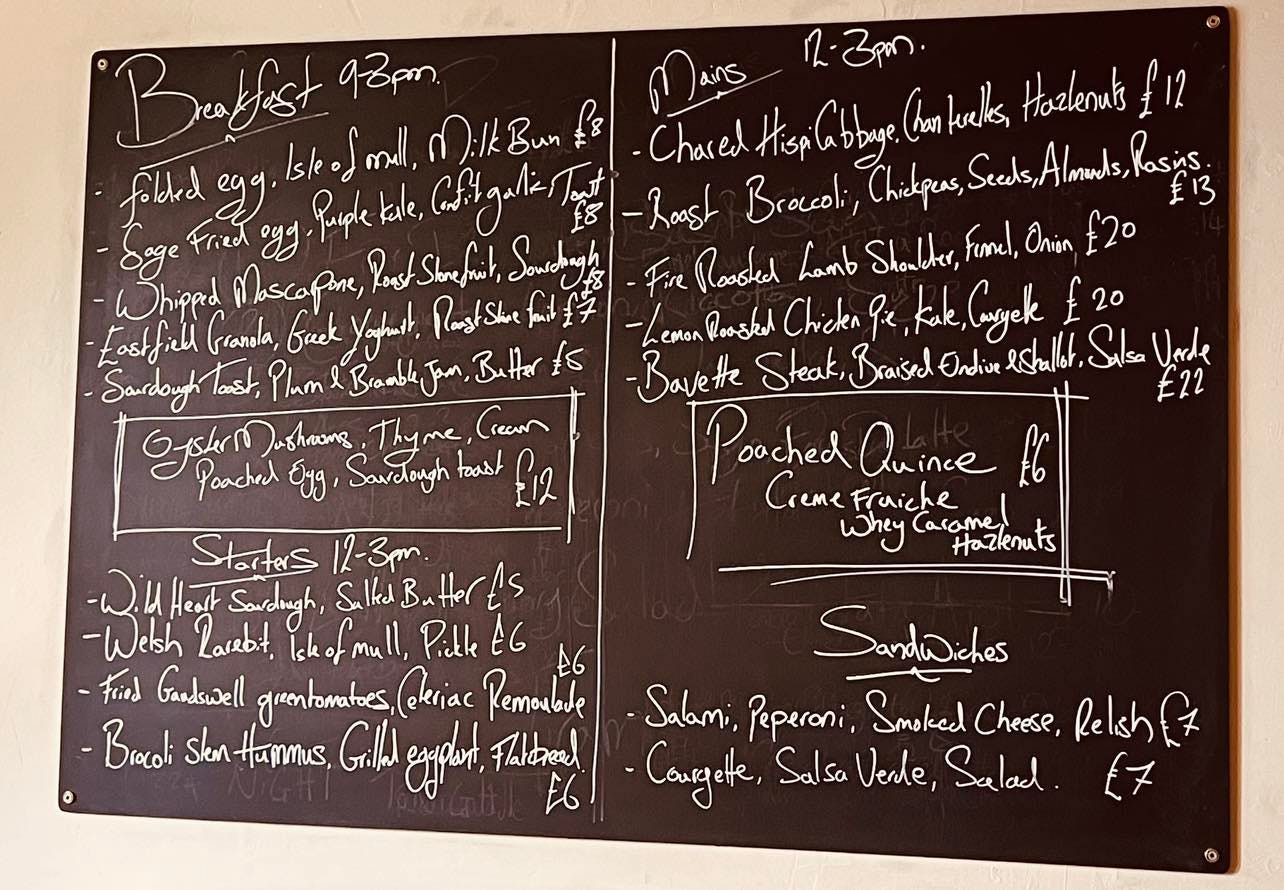 Breakfast 9-3pm.
- folded egg, Isle of mull, Milk Bun £8
- Sage Fried egg, Purple kale, Confit garlic, Toast
£8
- Whipped Mascarpone, Roast Stonefruit, Sourdough
£8
- Eastfield Granola, Greek Yoghurt, Roast Stone fruit £7
- Sourdough Toast, Plum & Bramble Jam, Butter £5
Oyster Mushrooms, Thyme, Cream
Poached Egg, Sourdough toast £12
Starters 12-3pm.
- Wild Heart Sourdough, Salted Butter £5
- Welsh Rarebit, Isle of mull, Pickle £6
- Fried Goodswell greentomatoes, Celeriac Remoulade £6
- Brocoli stem Hummus, Grilled eggplant, Flatbread.
£6
Mains 12-3pm.
- Chared Hispi Cabbage, Chanterelles, Hazlenuts £12
- Roast Broccoli, Chickpeas, Seeds, Almonds, Rasins.
£13
- Fire Roasted Lamb Shoulder, Fennel, Onion £20
- Lemon Roasted Chicken Pie, Kale, Courgette £20
- Bavette Steak, Braised Endive & Shallot, Salsa Verde
£22
Poached Quince £6
Creme Fraiche
Whey Caramel
Hazlenuts
Sandwiches
- Salami, Peperoni, Smoked Cheese, Relish £7
- Courgette, Salsa Verde, Salad. £7